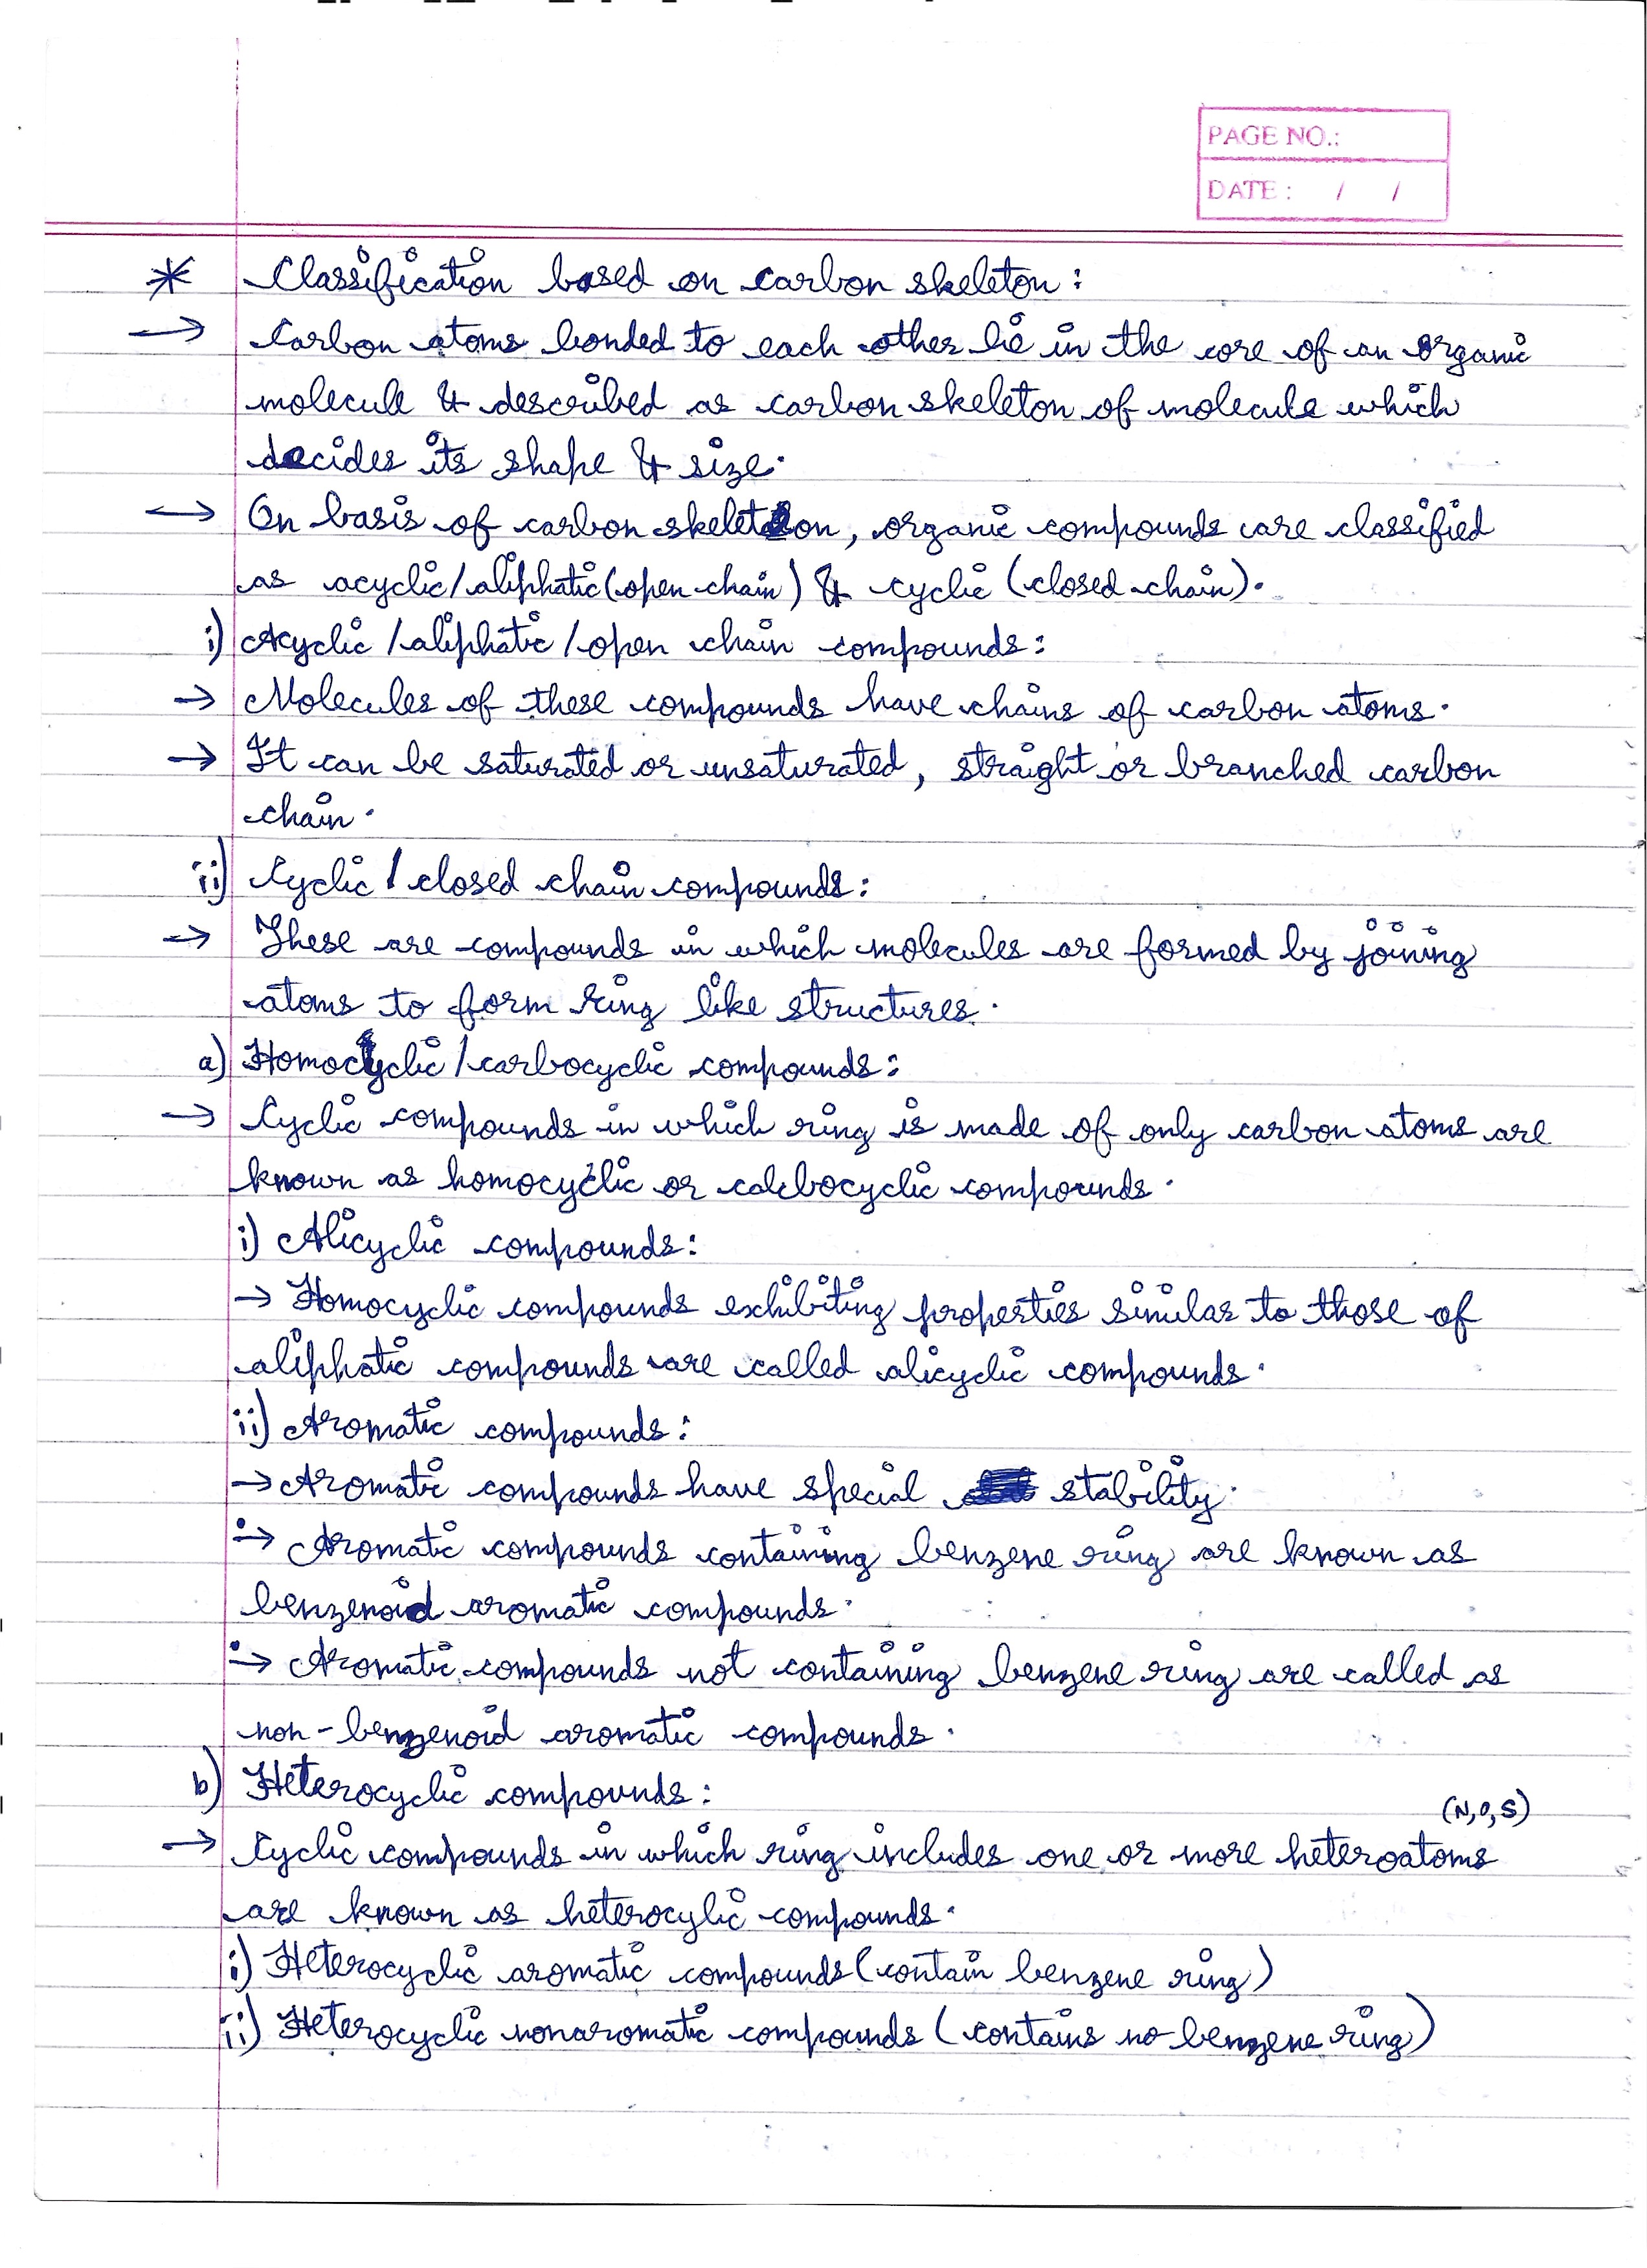 PAGE NO.:
DATE : / /
* Classification based on carbon skeleton :
→ Carbon atoms bonded to each other lie in the core of an organic
molecule & described as carbon skeleton of molecule which
decides its shape & size.
→ On basis of carbon skeleton, organic compounds are classified
as acyclic/aliphatic (open chain) & cyclic (closed chain).
i) Acyclic /aliphatic /open chain compounds :
→ Molecules of these compounds have chains of carbon atoms.
→ It can be saturated or unsaturated, straight or branched carbon
chain.
ii) Cyclic / closed chain compounds :
→ These are compounds in which molecules are formed by joining
atoms to form ring like structures.
a) Homocyclic / carbocyclic compounds :
→ Cyclic compounds in which ring is made of only carbon atoms are
known as homocyclic or calcbocyclic compounds.
i) Alicyclic compounds :
→ Homocyclic compounds exhibiting properties similar to those of
aliphatic compounds are called alicyclic compounds.
ii) Aromatic compounds :
→ Aromatic compounds have special stability.
→ Aromatic compounds containing benzene ring are known as
benzenoid aromatic compounds.
→ Aromatic compounds not containing benzene ring are called as
non-benzenoid aromatic compounds.
b) Heterocyclic compounds :
(N,O,S)
→ Cyclic compounds in which ring includes one or more heteroatoms
are known as heterocylic compounds.
i) Heterocyclic aromatic compounds (contain benzene ring)
ii) Heterocyclic nonaromatic compounds (contains no benzene ring)